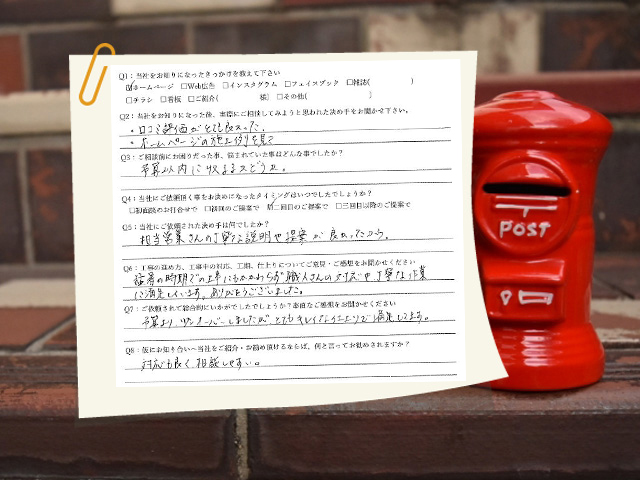 Q1：当社をお知りになったきっかけを教えて下さい
☑ホームページ □Web広告 □インスタグラム □フェイスブック □雑誌( )
□チラシ □看板 □ご紹介( 様) □その他( )
Q2：当社をお知りになった後、実際にご相談してみようと思われた決め手をお聞かせ下さい。
・口コミ評価がとても良かった。
・ホームページの施工例を見て
Q3：ご相談前にお困りだった事、悩まれていた事はどんな事でしたか？
予算以内に収まるかどうか。
Q4：当社にご依頼頂く事をお決めになったタイミングはいつでしたでしょうか？
□初面談のお打合せで □初回のご提案で ☑二回目のご提案で □三回目以降のご提案で
Q5：当社にご依頼された決め手は何でしたか？
担当営業さんの丁寧な説明や提案が良かったから。
Q6：工事の進め方、工事中の対応、工期、仕上りについてご意見・ご感想をお聞かせください
猛暑の時期での工事にもかかわらず職人さんの対応や丁寧な作業
に満足しています。ありがとうございました。
Q7：ご依頼されて総合的にいかがでしたでしょうか？率直なご感想をお聞かせください
予算より オーバーしましたが、とてもキレイな仕上りで満足してます。
Q8：仮にお知り合いへ当社をご紹介・お勧め頂けるならば、何と言ってお勧めされますか？
対応も良く相談しやすい。
POST